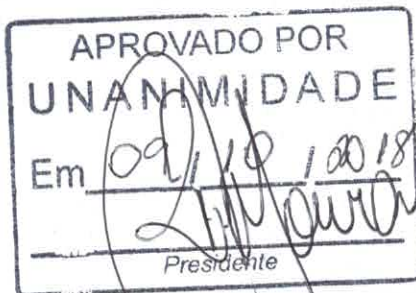 APROVADO POR
UNANIMIDADE
Em 09/10/2018
Presidente